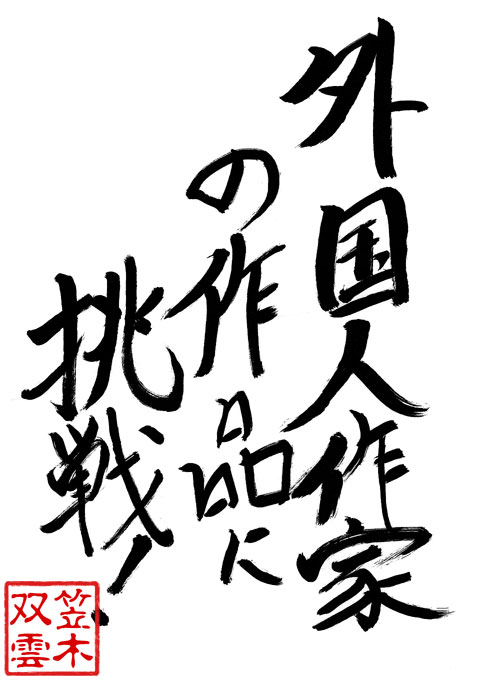 外国人作家
の作品に
挑戦！
笠木
双雲